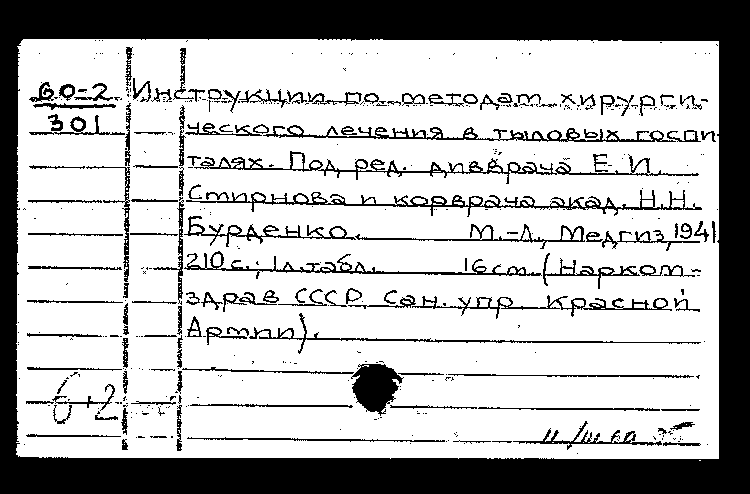 60-2 Инструкции по методам хирурги-
301 ческого лечения в тыловых госпи
талях. Под ред. дивврача Е. И.
Смирнова и корврача акад. Н.Н.
Бурденко. М.-Л., Медгиз, 1941.
210 с.; 1 л. табл. 16 см (Нарком-
здрав СССР. Сан. упр. Красной
Армии).
6+2